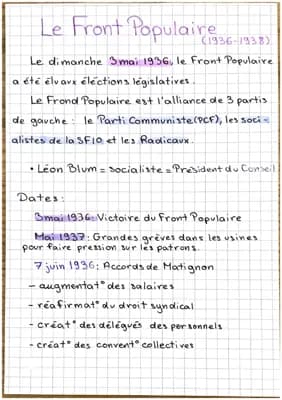 Le Front Populaire
(1936-1938)
Le dimanche 3 mai 1936, le Front Populaire
a été élu aux éléctions législatives.
Le Frond Populaire est l'alliance de 3 partis
de gauche : le Parti Communiste (PCF), les soci-
alistes de la SFIO et les Radicaux.
• Léon Blum = socialiste = Président du Conseil
Dates :
3 mai 1936: Victoire du Front Populaire
Mai 1937: Grandes grèves dans les usines
pour faire pression sur les patrons.
7 juin 1936: Accords de Matignon
- augmentat° des salaires
- réafirmat° du droit syndical
- créat° des délégués des personnels
- créat° des convent° collectives